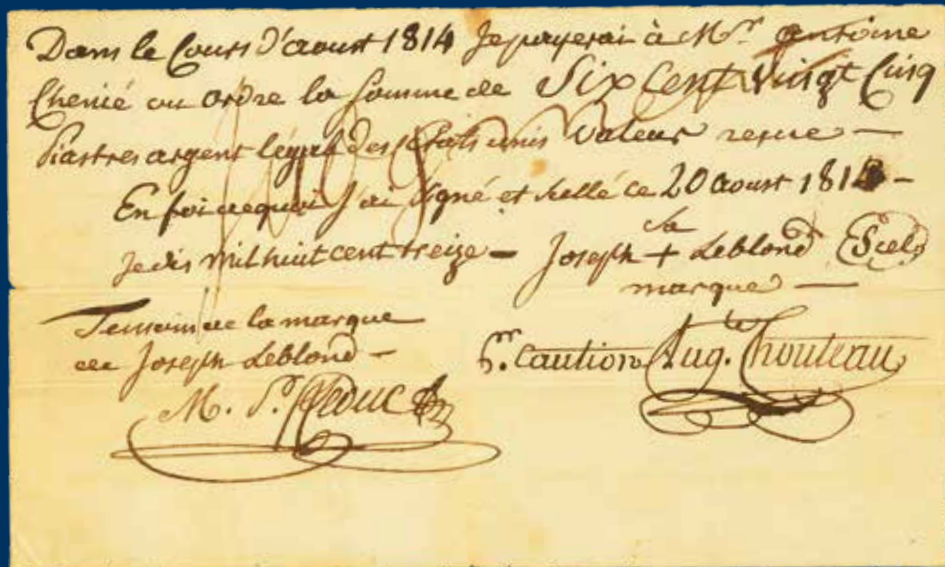 Dans le Cours d'aoust 1814 Je payerai à Mr. Antoine
Chenié ou ordre la somme de Six Cent Vingt Cinq
Piastres argent légal des Etats unis Valeur reçue —
En foi de quoi J'ai signé et scellé ce 20 aoust 181 —
Je dis mil huit cent treize — Joseph + Leblond Scel
sa
marque —
Temoin de la marque
de Joseph Leblond —
M. P. Leduc
pr. Caution Augte. Chouteau